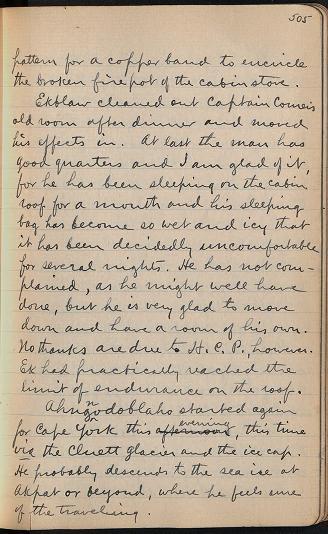 505
pattern for a copper band to encircle
the broken firepot of the cabin stove.
Ekblaw cleaned out Captain Comer's
old room after dinner and moved
his effects in. At last the man has
good quarters and I am glad of it,
for he has been sleeping on the cabin
roof for a month and his sleeping
bag has become so wet and icy that
it has been decidedly uncomfortable
for several nights. He has not com-
plained, as he might well have
done, but he is very glad to move
down and have a room of his own.
No thanks are due to H. C. P., however.
Ek had practically reached the
limit of endurance on the roof.
Ahngodoblaho started again
for Cape York this afternoon evening, this time
via the Cluett glacier and the ice cap.
He probably descends to the sea ice at
Akpat or beyond, where he feels sure
of the traveling.